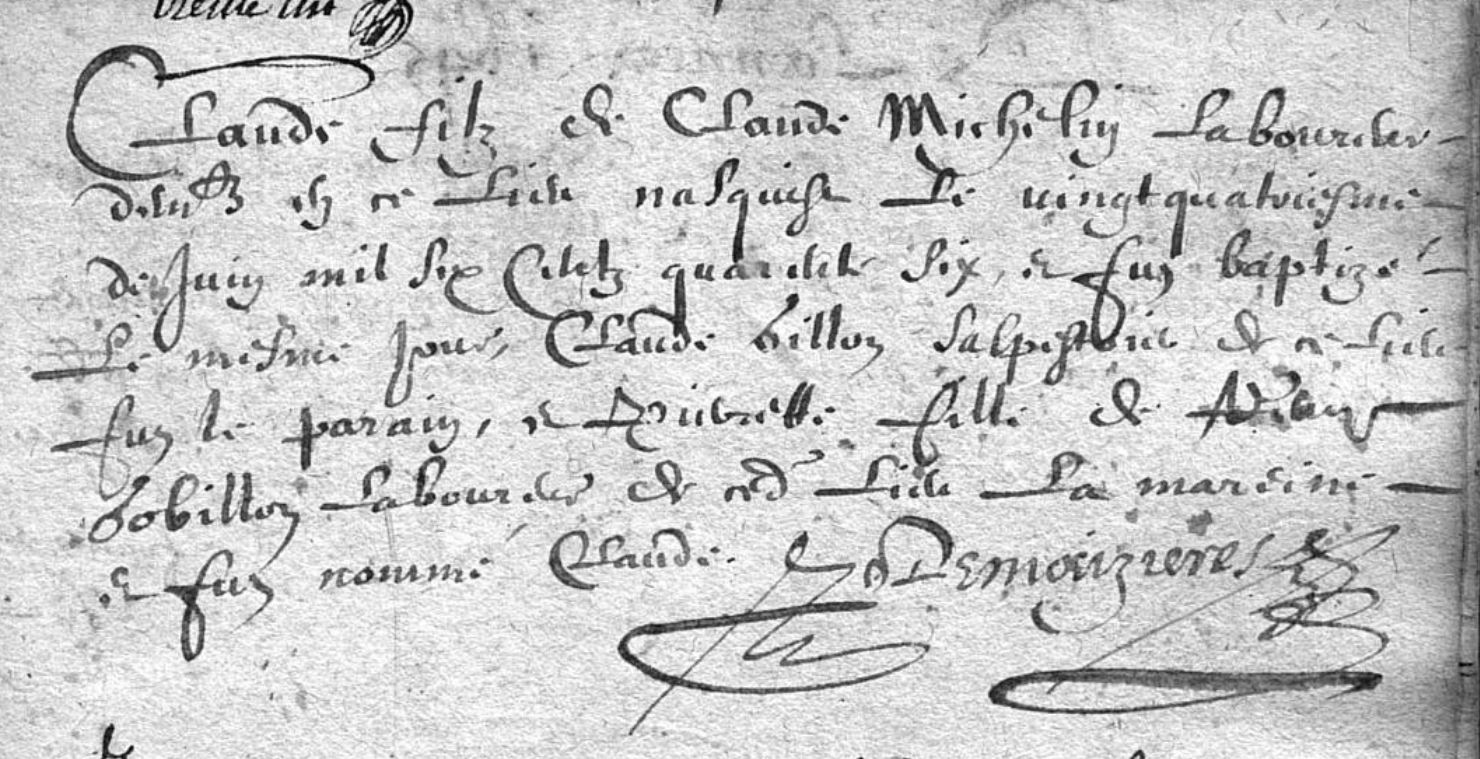 Claude filz de Claude Michelin Laboureur
demt en ce Lieu nasquist Le vingtquatriesme
de Juin mil six Centz quarente six, et fut baptizé
Le mesme jour, Claude billon salpestrier de ce Lieu
fut le parain, et Pierrette fille de
Gobillon Laboureur de ced Lieu La mareine
et fut nommé Claude. Demoizieres